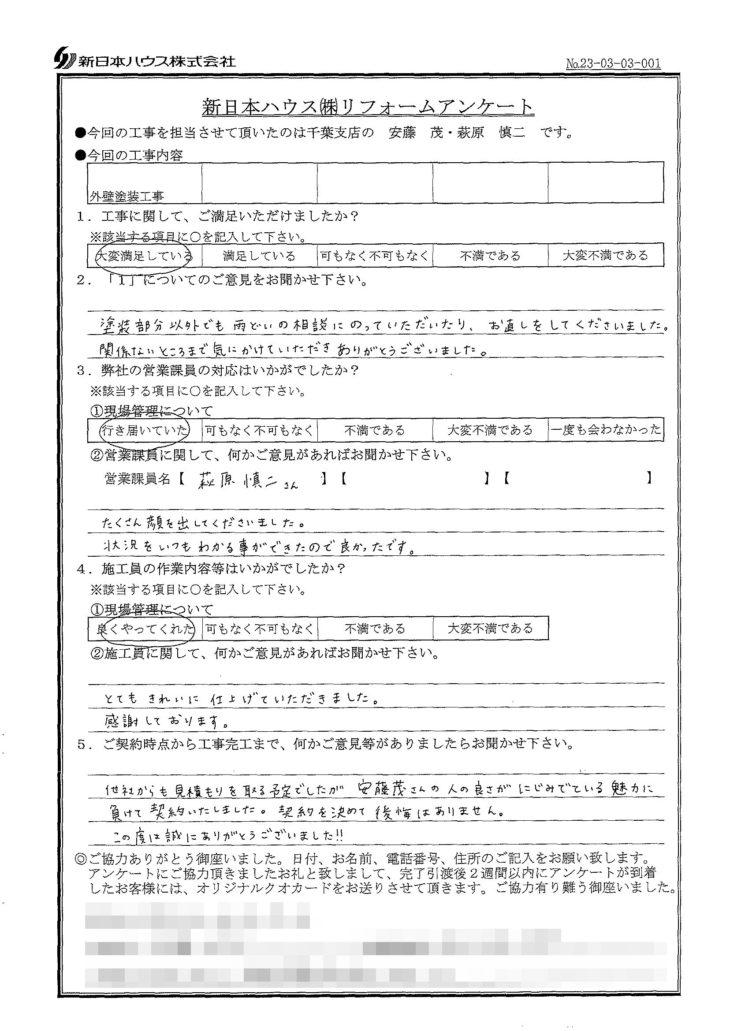 新日本ハウス株式会社
№23-03-03-001
新日本ハウス㈱リフォームアンケート
●今回の工事を担当させて頂いたのは千葉支店の 安藤 茂・萩原 慎二 です。
●今回の工事内容
外壁塗装工事
1．工事に関して、ご満足いただけましたか？
※該当する項目に○を記入して下さい。
大変満足している 満足している 可もなく不可もなく 不満である 大変不満である
2．「1」についてのご意見をお聞かせ下さい。
塗装部分以外でも雨どいの相談にのっていただいたり、お直しをしてくださいました。
関係ないところまで気にかけていただきありがとうございました。
3．弊社の営業課員の対応はいかがでしたか？
※該当する項目に○を記入して下さい。
①現場管理について
行き届いていた 可もなく不可もなく 不満である 大変不満である 一度も会わなかった
②営業課員に関して、何かご意見があればお聞かせ下さい。
営業課員名【 萩原慎二さん 】【 】【 】
たくさん顔を出してくださいました。
状況をいつもわかる事ができたので良かったです。
4．施工員の作業内容等はいかがでしたか？
※該当する項目に○を記入して下さい。
①現場管理について
良くやってくれた 可もなく不可もなく 不満である 大変不満である
②施工員に関して、何かご意見があればお聞かせ下さい。
とてもきれいに仕上げていただきました。
感謝しております。
5．ご契約時点から工事完工まで、何かご意見等がありましたらお聞かせ下さい。
他社からも見積もりを取る予定でしたが 安藤茂さんの人の良さがにじみでている魅力に
負けて契約いたしました。契約を決めて後悔はありません。
この度は誠にありがとうございました!!
◎ご協力ありがとう御座いました。日付、お名前、電話番号、住所のご記入をお願い致します。
アンケートにご協力頂きましたお礼と致しまして、完了引渡後２週間以内にアンケートが到着
したお客様には、オリジナルクオカードをお送りさせて頂きます。ご協力有り難う御座いました。